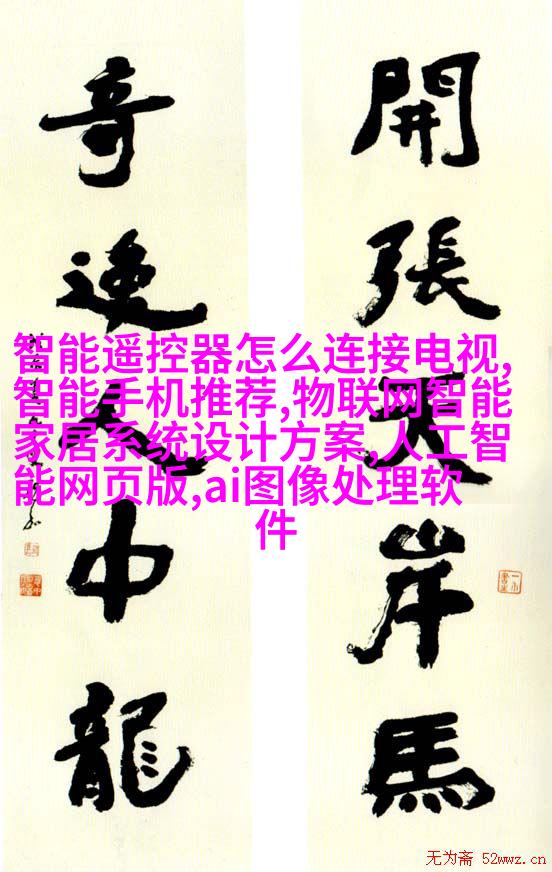 開張天岸馬
奇逸人中龍
智能遥控器怎么连接电视,
智能手机推荐,物联网智能
家居系统设计方案,人工智
能网页版,ai图像处理软
件
无为斋 52wwz.cn